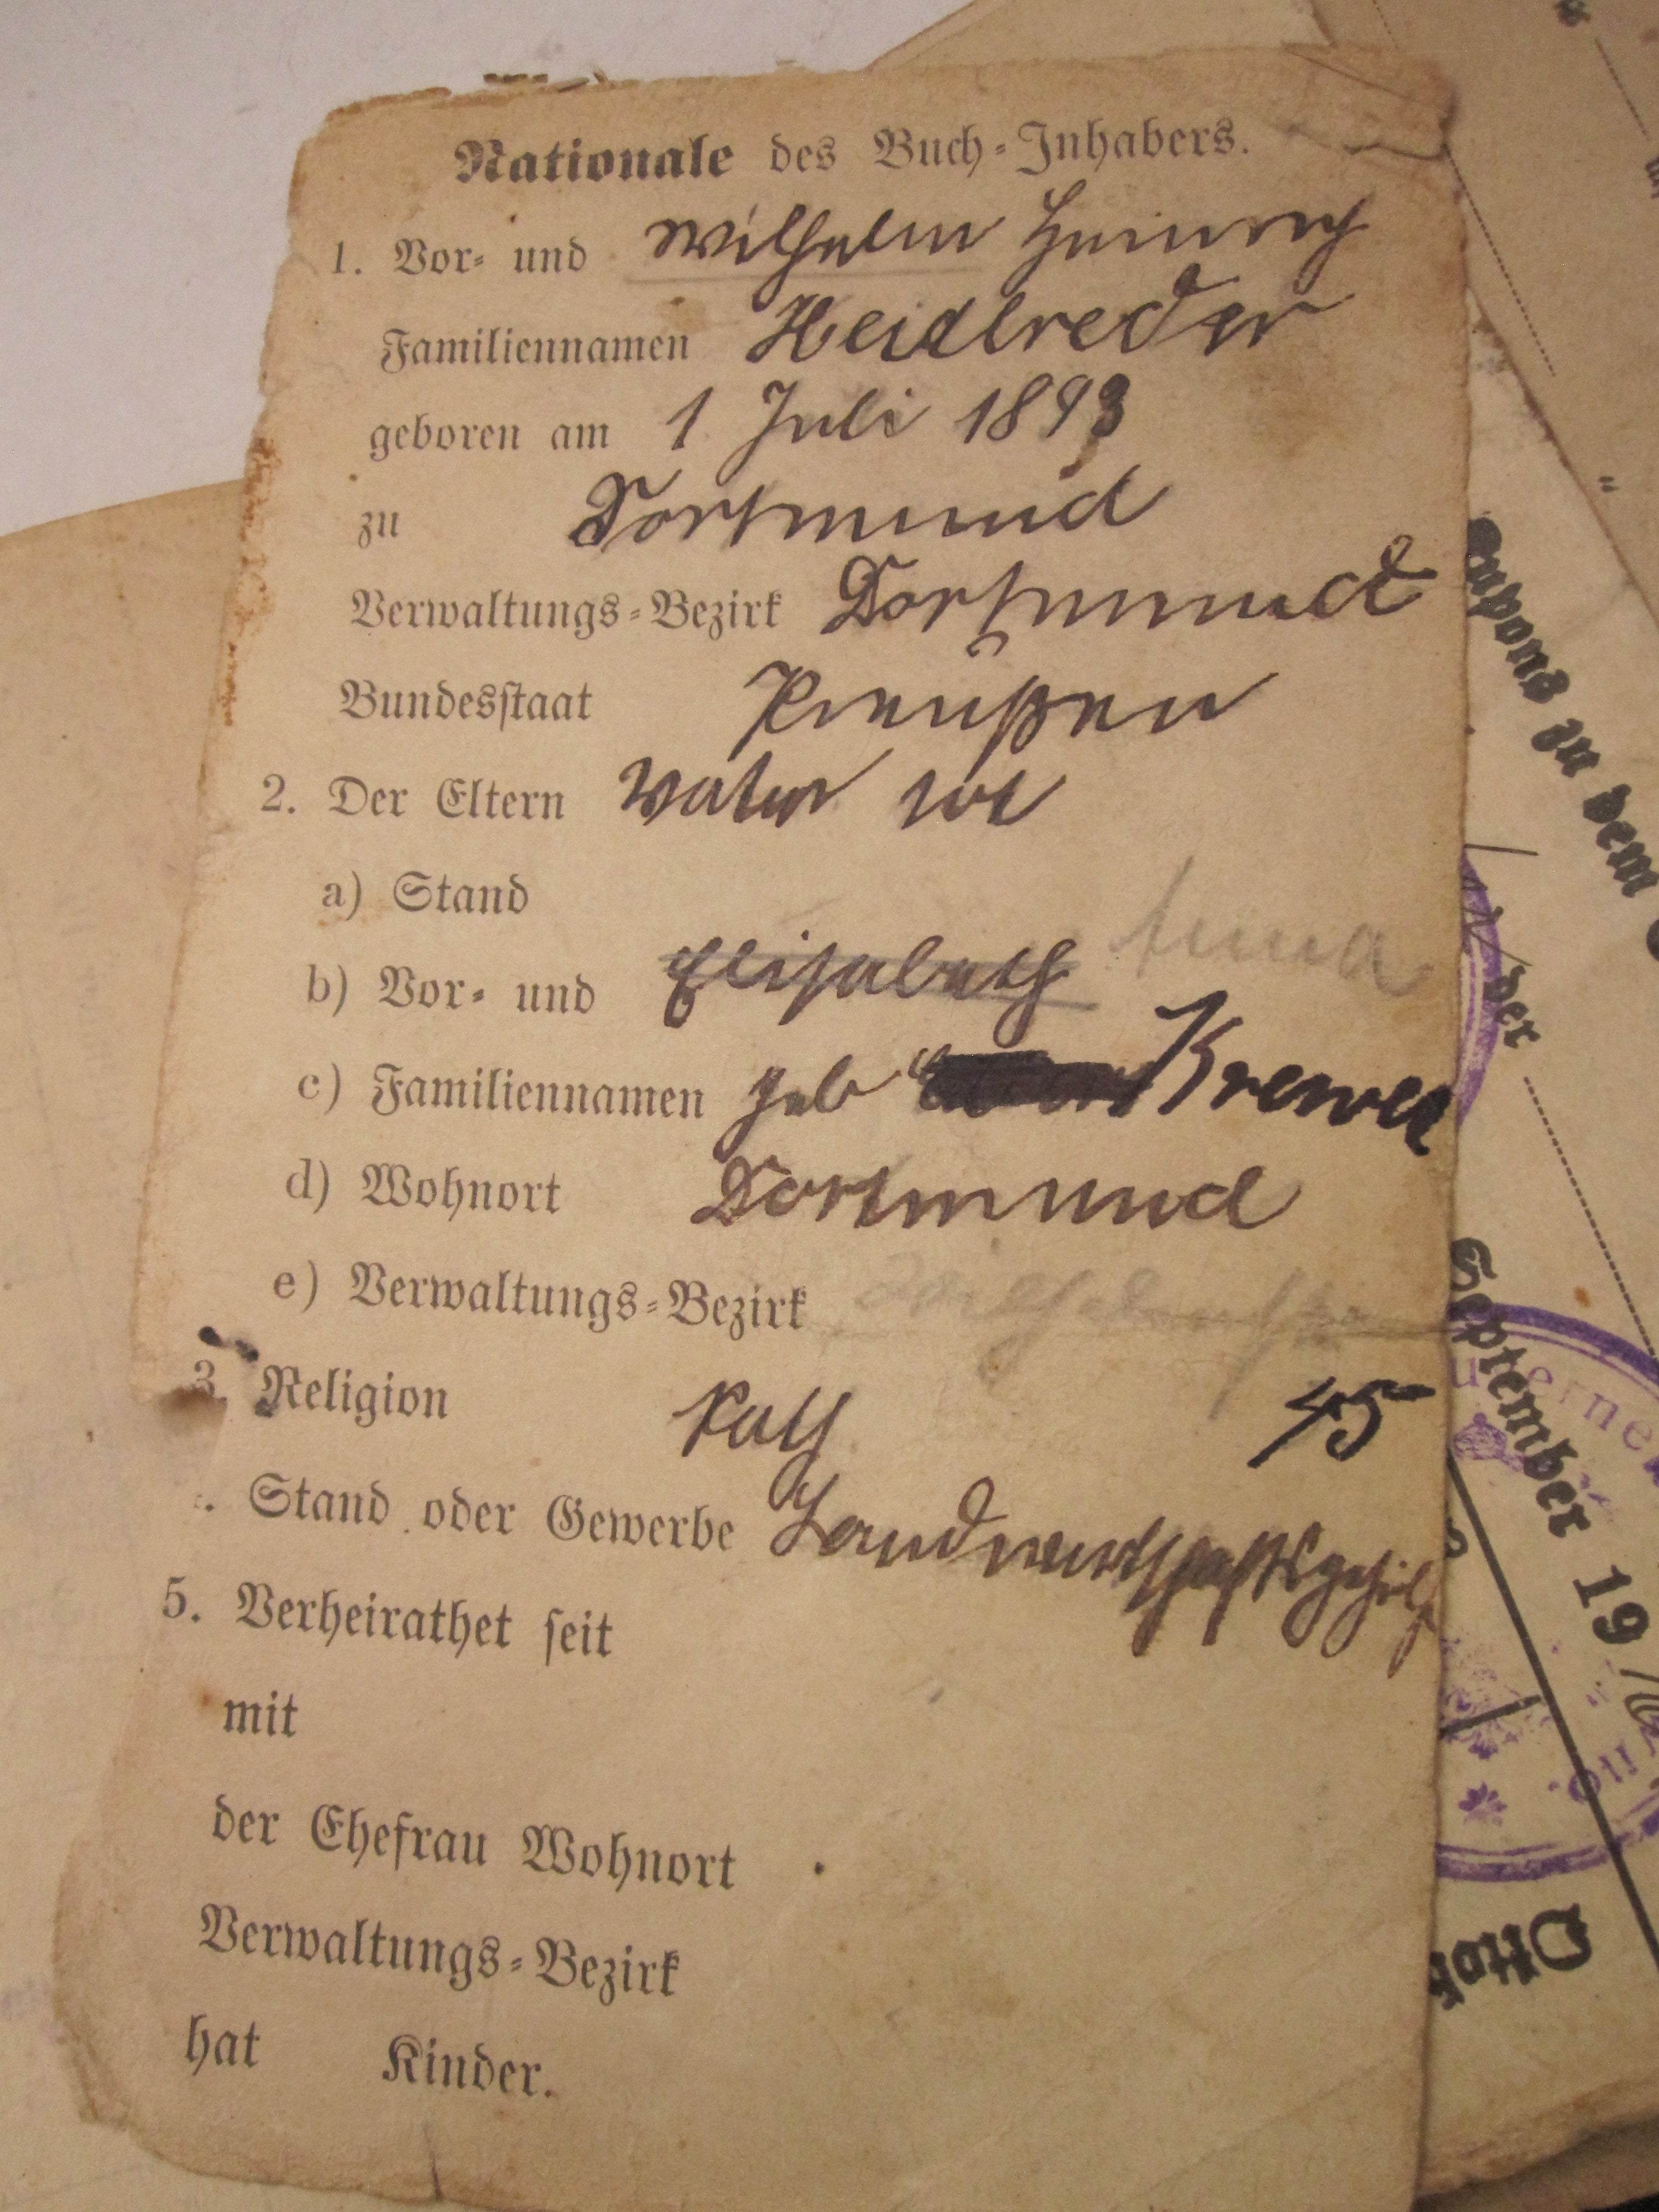 Nationale des Buch-Inhabers.
1. Vor- und Wilhelm Heinrich
Familiennamen Heidbreder
geboren am 1 Juli 1893
zu Dortmund
Verwaltungs-Bezirk Dortmund
Bundesstaat Preußen
2. Der Eltern Vater tot
a) Stand
b) Vor- und Elisabeth Anna
c) Familiennamen geb Brewer
d) Wohnort Dortmund
e) Verwaltungs-Bezirk
3. Religion Kath 45
. Stand oder Gewerbe Landwirtschaftsgehilfe
5. Verheirathet seit
mit
der Ehefrau Wohnort
Verwaltungs-Bezirk
hat Kinder.
upons zu dem
der
September 19